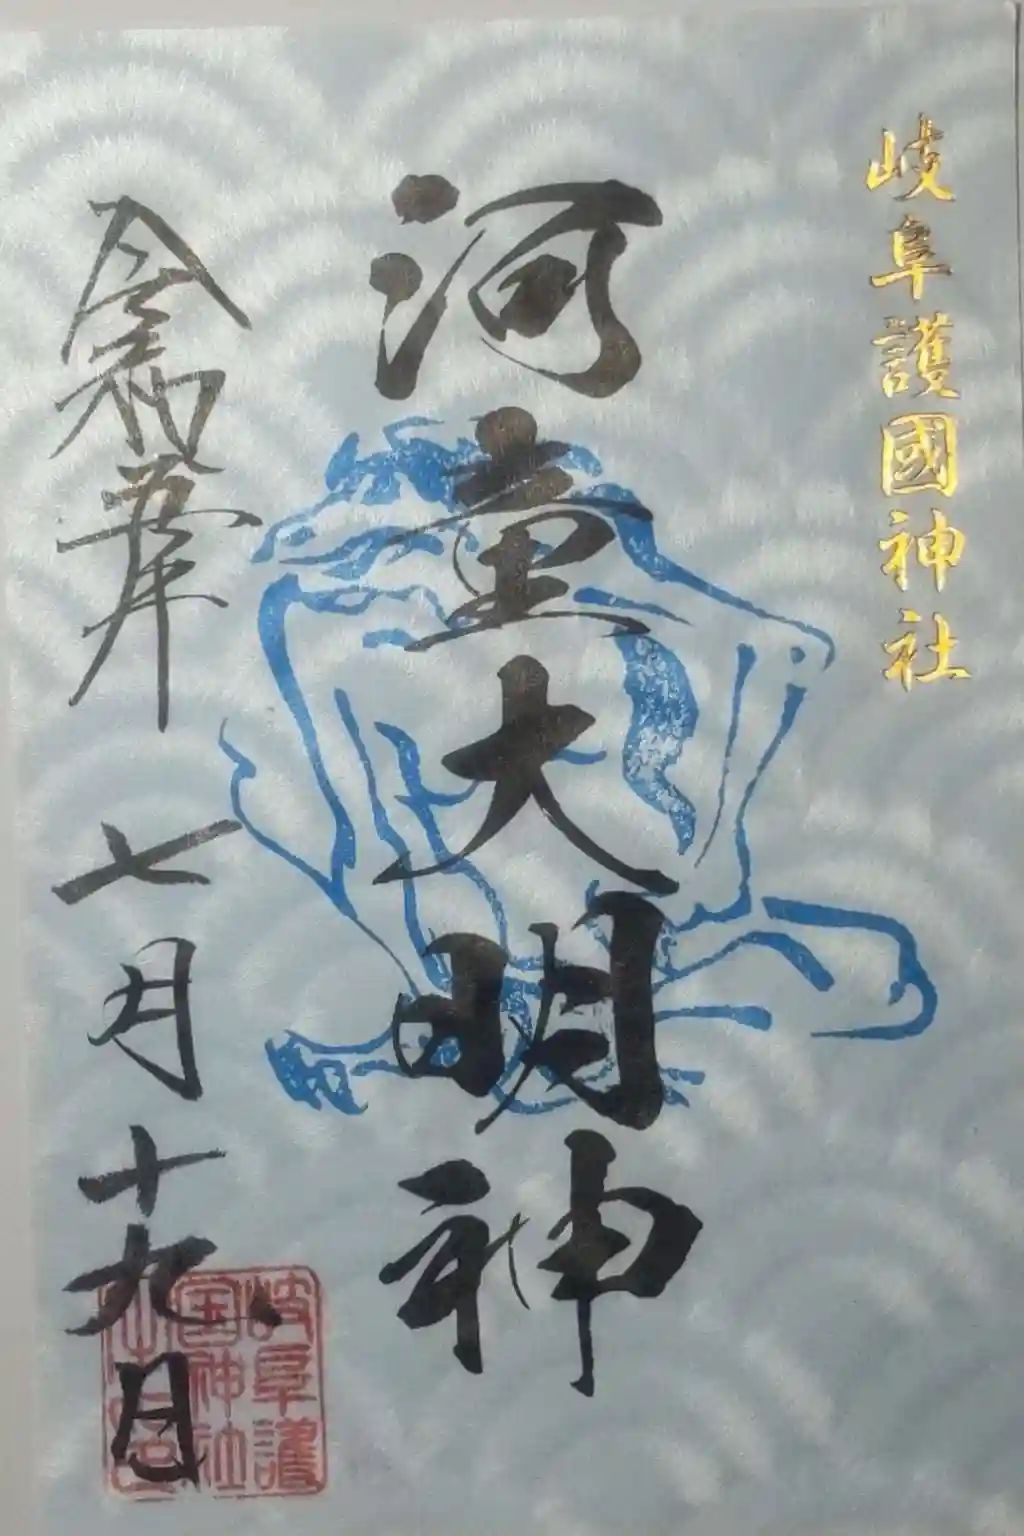 岐阜護國神社
河童大明神
令和五年 七月十九日
岐阜護
国神社
之印